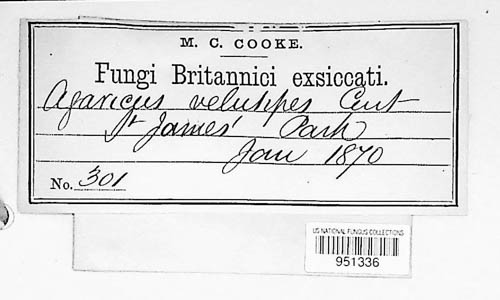 M. C. COOKE.
Fungi Britannici exsiccati.
Agaricus velutipes Curt
St James' Park
Jan 1870
No. 301
US NATIONAL FUNGUS COLLECTIONS
951336